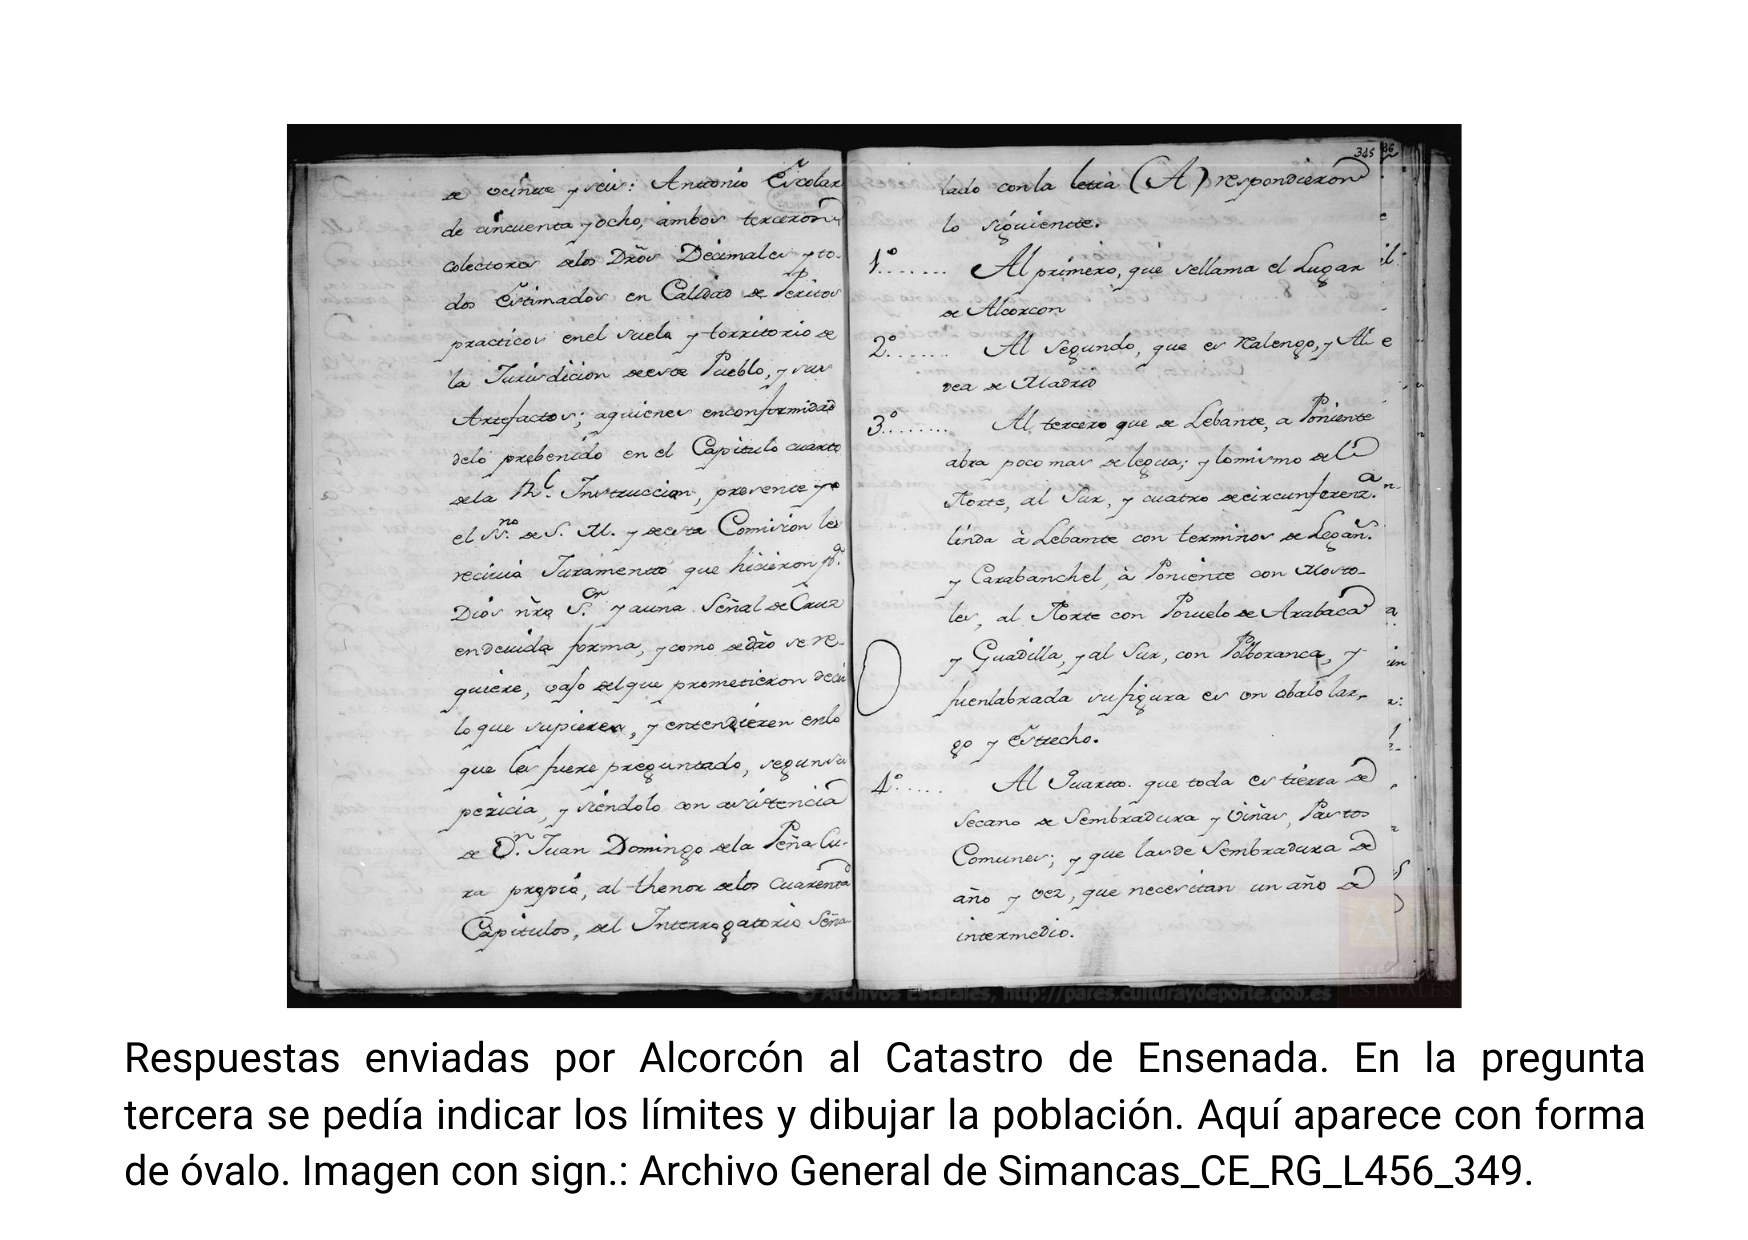 de veinte y seis: Antonio Escolar
de cincuenta y ocho, ambos terceros
colectores delos Dr̃os Decimales y to-
dos Estimados en Calidad de Peritos
practicos enel suelo y torritorio de
la Jurisdicion deeste Pueblo, y sus
Artefactos; aquienes enconformidad
delo prebenido en el Capitulo cuarto
dela Rl. Instruccion, presente yo
el Ssno. de S. M. y deesta Comision les
reciuió Juramento que hicieron pr.
Dios nr̃o Sor. y auna Señal de Cruz
endeuida forma, y como dedr̃o se re-
quiere, vajo delque prometieron decir
lo que supieren, y entendieren enlo
que les fuere preguntado, segun su
pericia, y siendolo con asistencia
de Dn. Juan Domingo dela Peña Cu-
ra propio, al thenor delos Cuarenta
Capitulos, del Interrogatorio Seña-
345
lado conla letra (A) respondieron
lo siguiente.
1º....... Al primero, que sellama el Lugar
de Alcorcon
2º....... Al Segundo, que es Ralengo, y Al-
dea de Madrid
3º........ Al tercero que de Lebante, a Poniente
abra poco mas de legua; y lomismo del
Norte, al Sur, y cuatro decircunferenz.a
linda à Lebante con terminos de Legan.s
y Carabanchel, à Poniente con Mosto-
les, al Norte con Pozuelo de Arabaca
y Guadilla, y al Sur, con Polboranca, y
fuenlabrada sufigura es on obalo lar-
go y Estrecho.
4º..... Al Quarto. que toda es tierra de
Secano de Sembradura y Viñas, Pastos
Comunes; y que lasde Sembradura de
año y vez, que necesitan un año de
intermedio.
© Archivos Estatales, http://pares.culturaydeporte.gob.es
ESTATALES
Respuestas enviadas por Alcorcón al Catastro de Ensenada. En la pregunta
tercera se pedía indicar los límites y dibujar la población. Aquí aparece con forma
de óvalo. Imagen con sign.: Archivo General de Simancas_CE_RG_L456_349.